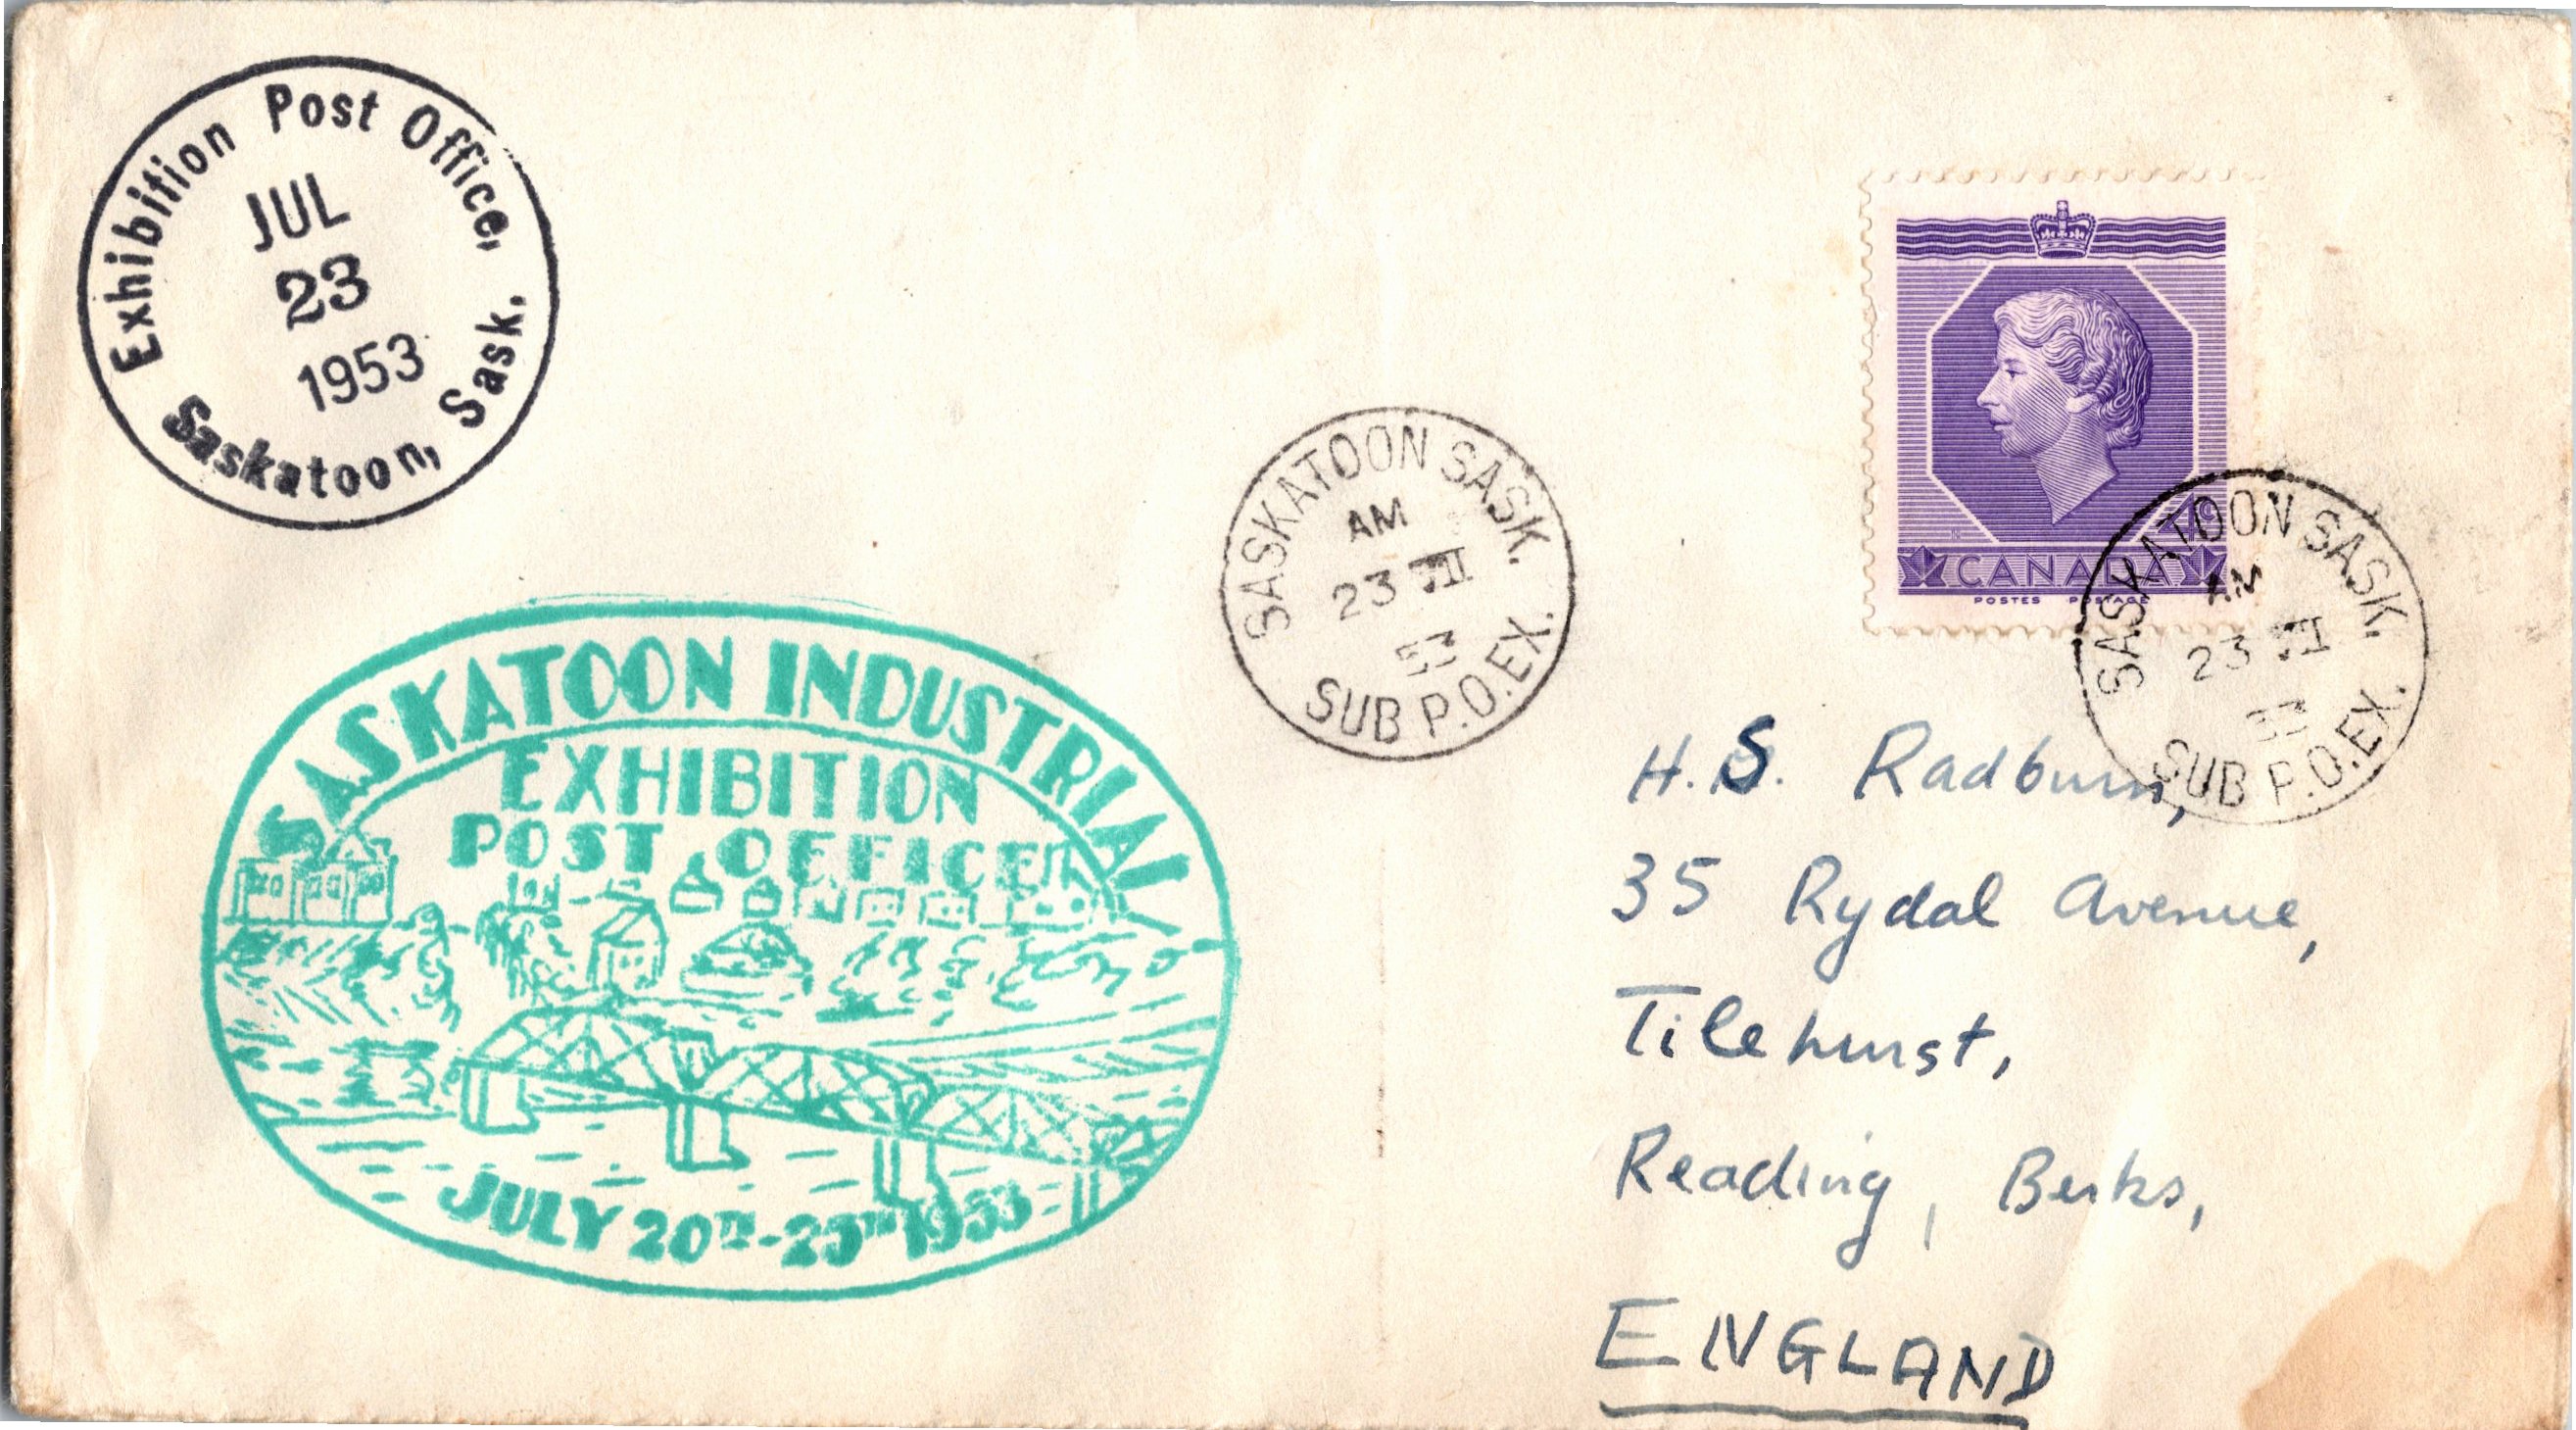 Exhibition Post Office,
Saskatoon, Sask.
JUL
23
1953
SASKATOON INDUSTRIAL
EXHIBITION
POST OFFICE
JULY 20TH-25TH 1953
SASKATOON SASK.
AM
23 VII
53
SUB P.O. EX.
4¢
CANADA
POSTES POSTAGE
SASKATOON SASK.
AM
23 VII
53
SUB P.O. EX.
H.S. Radburn,
35 Rydal Avenue,
Tilehurst,
Reading, Berks,
ENGLAND